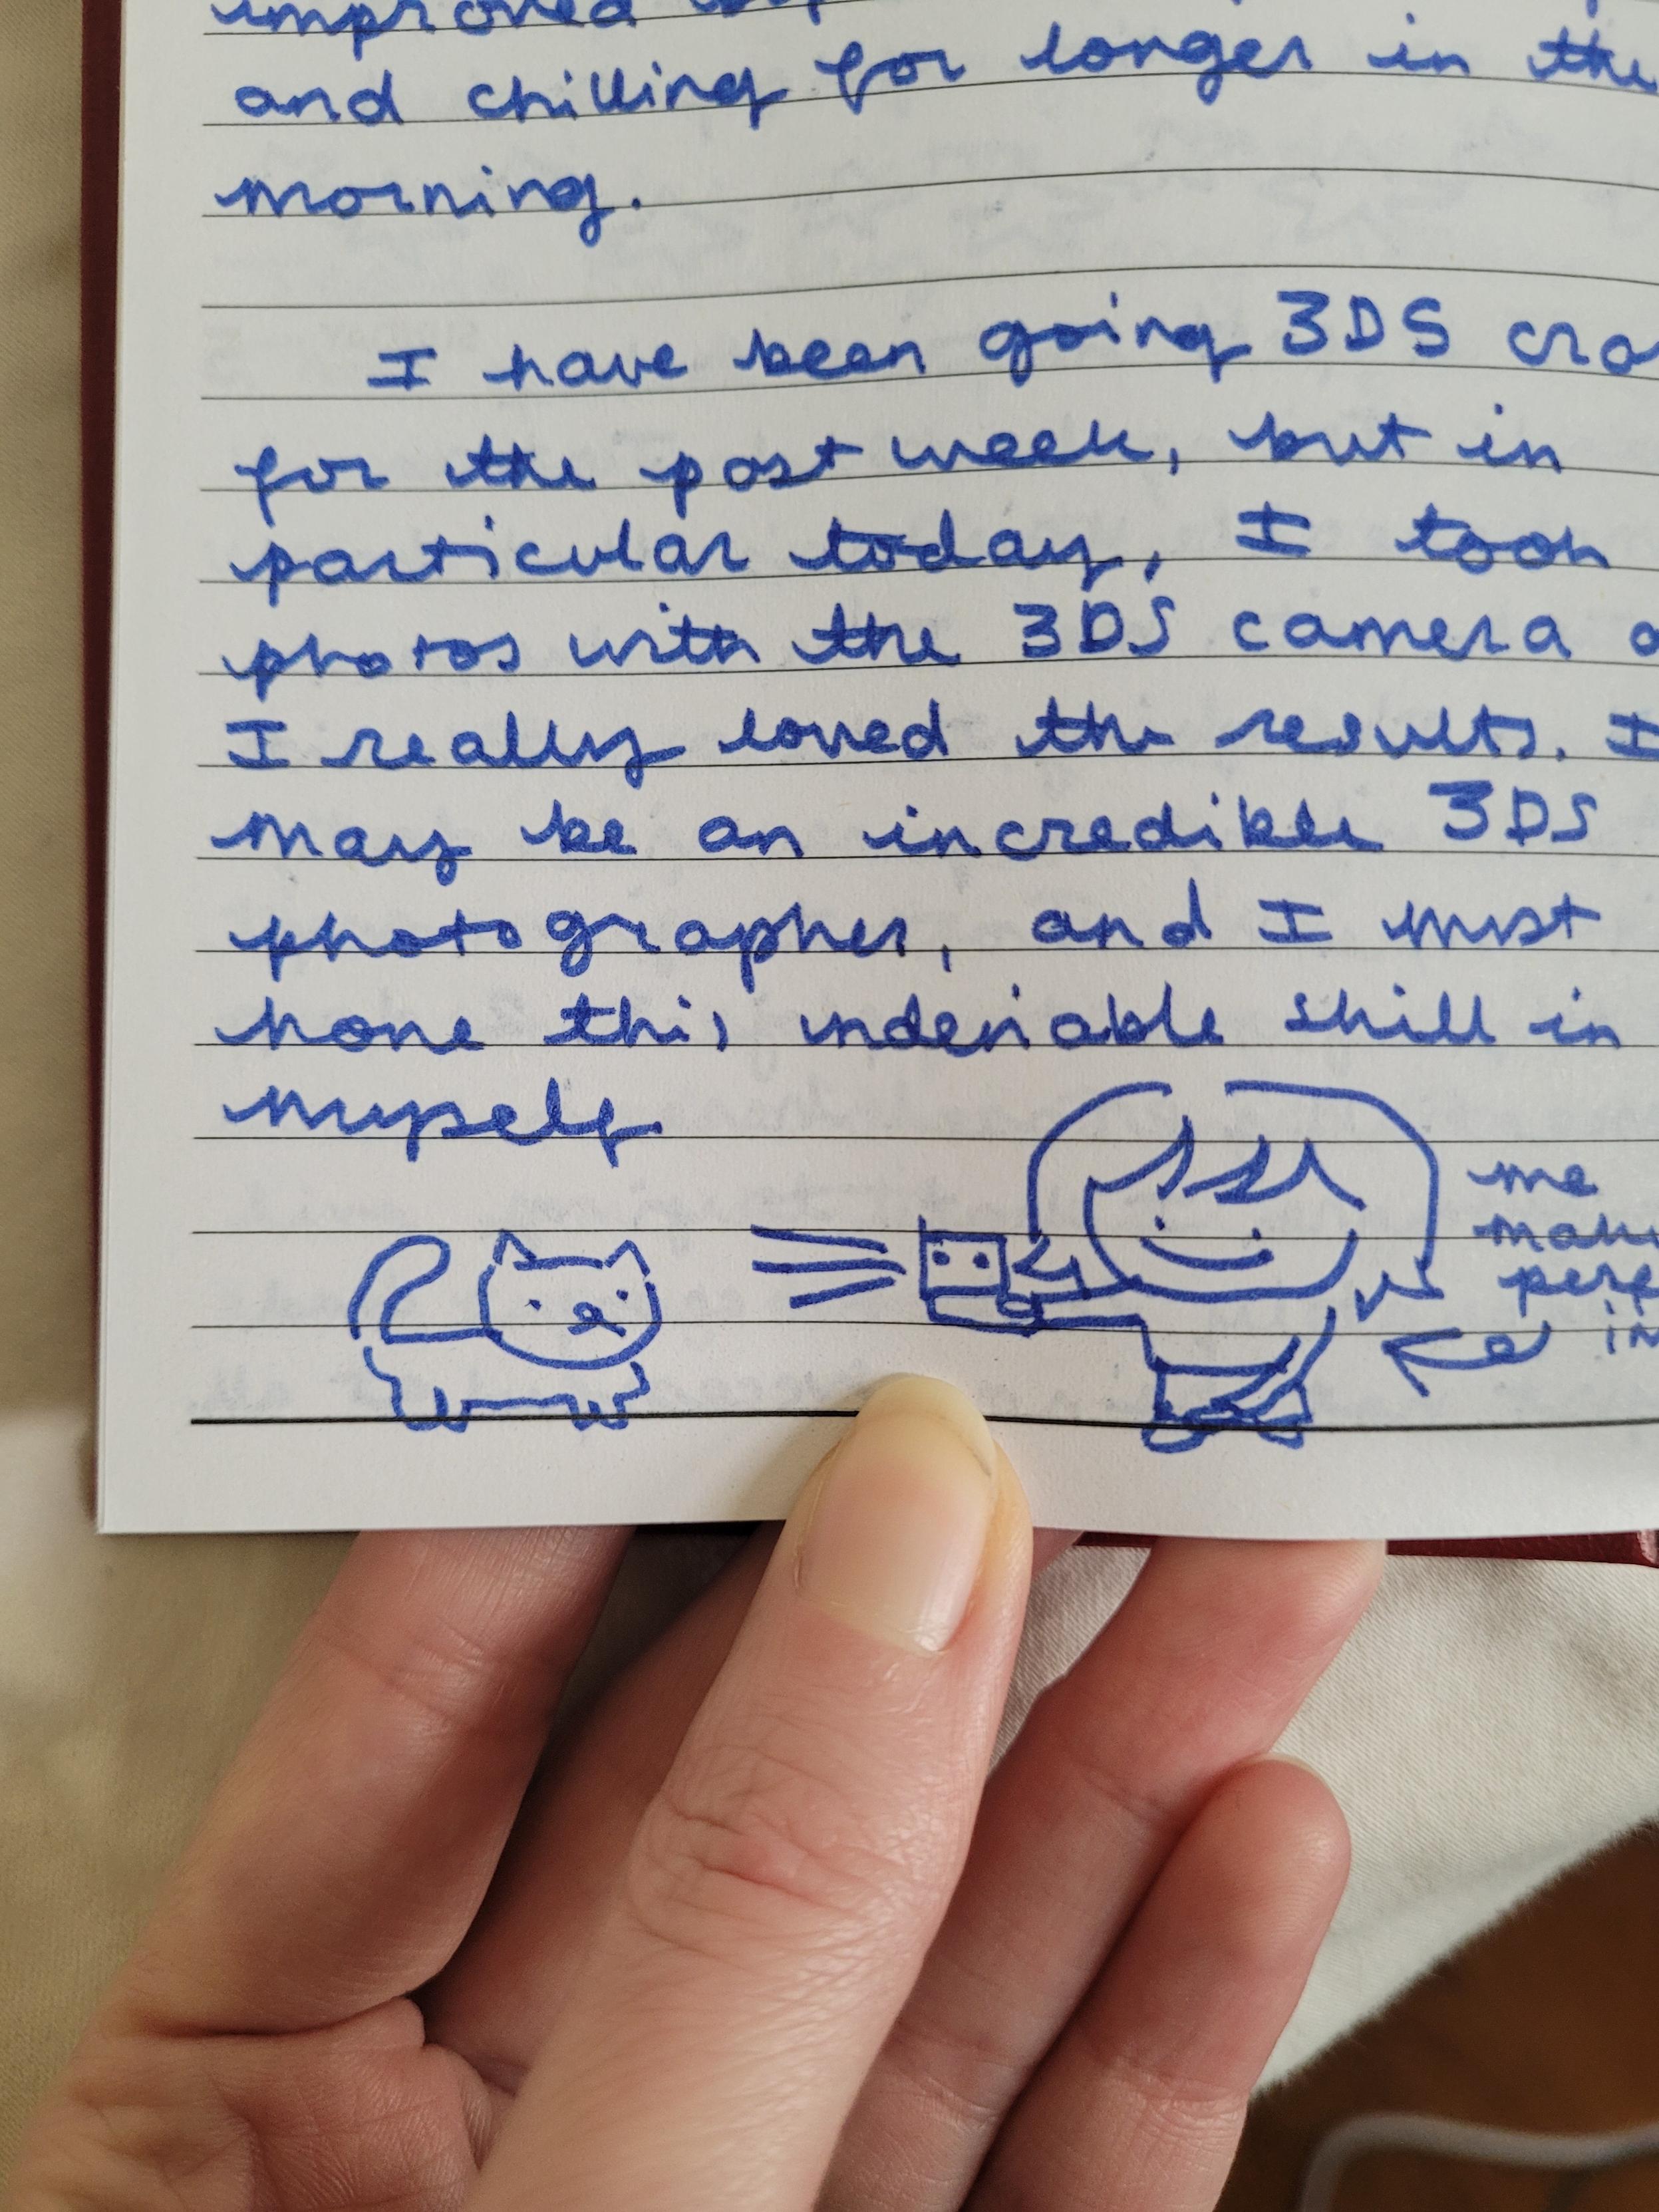 improved
and chilling for longer in the
morning.
I have been going 3DS
for the past week, but in
particular today, I took
photos with the 3DS camera
I really loved the results. I
may be an incredible 3DS
photographer, and I must
hone this undeniable skill in
myself
me